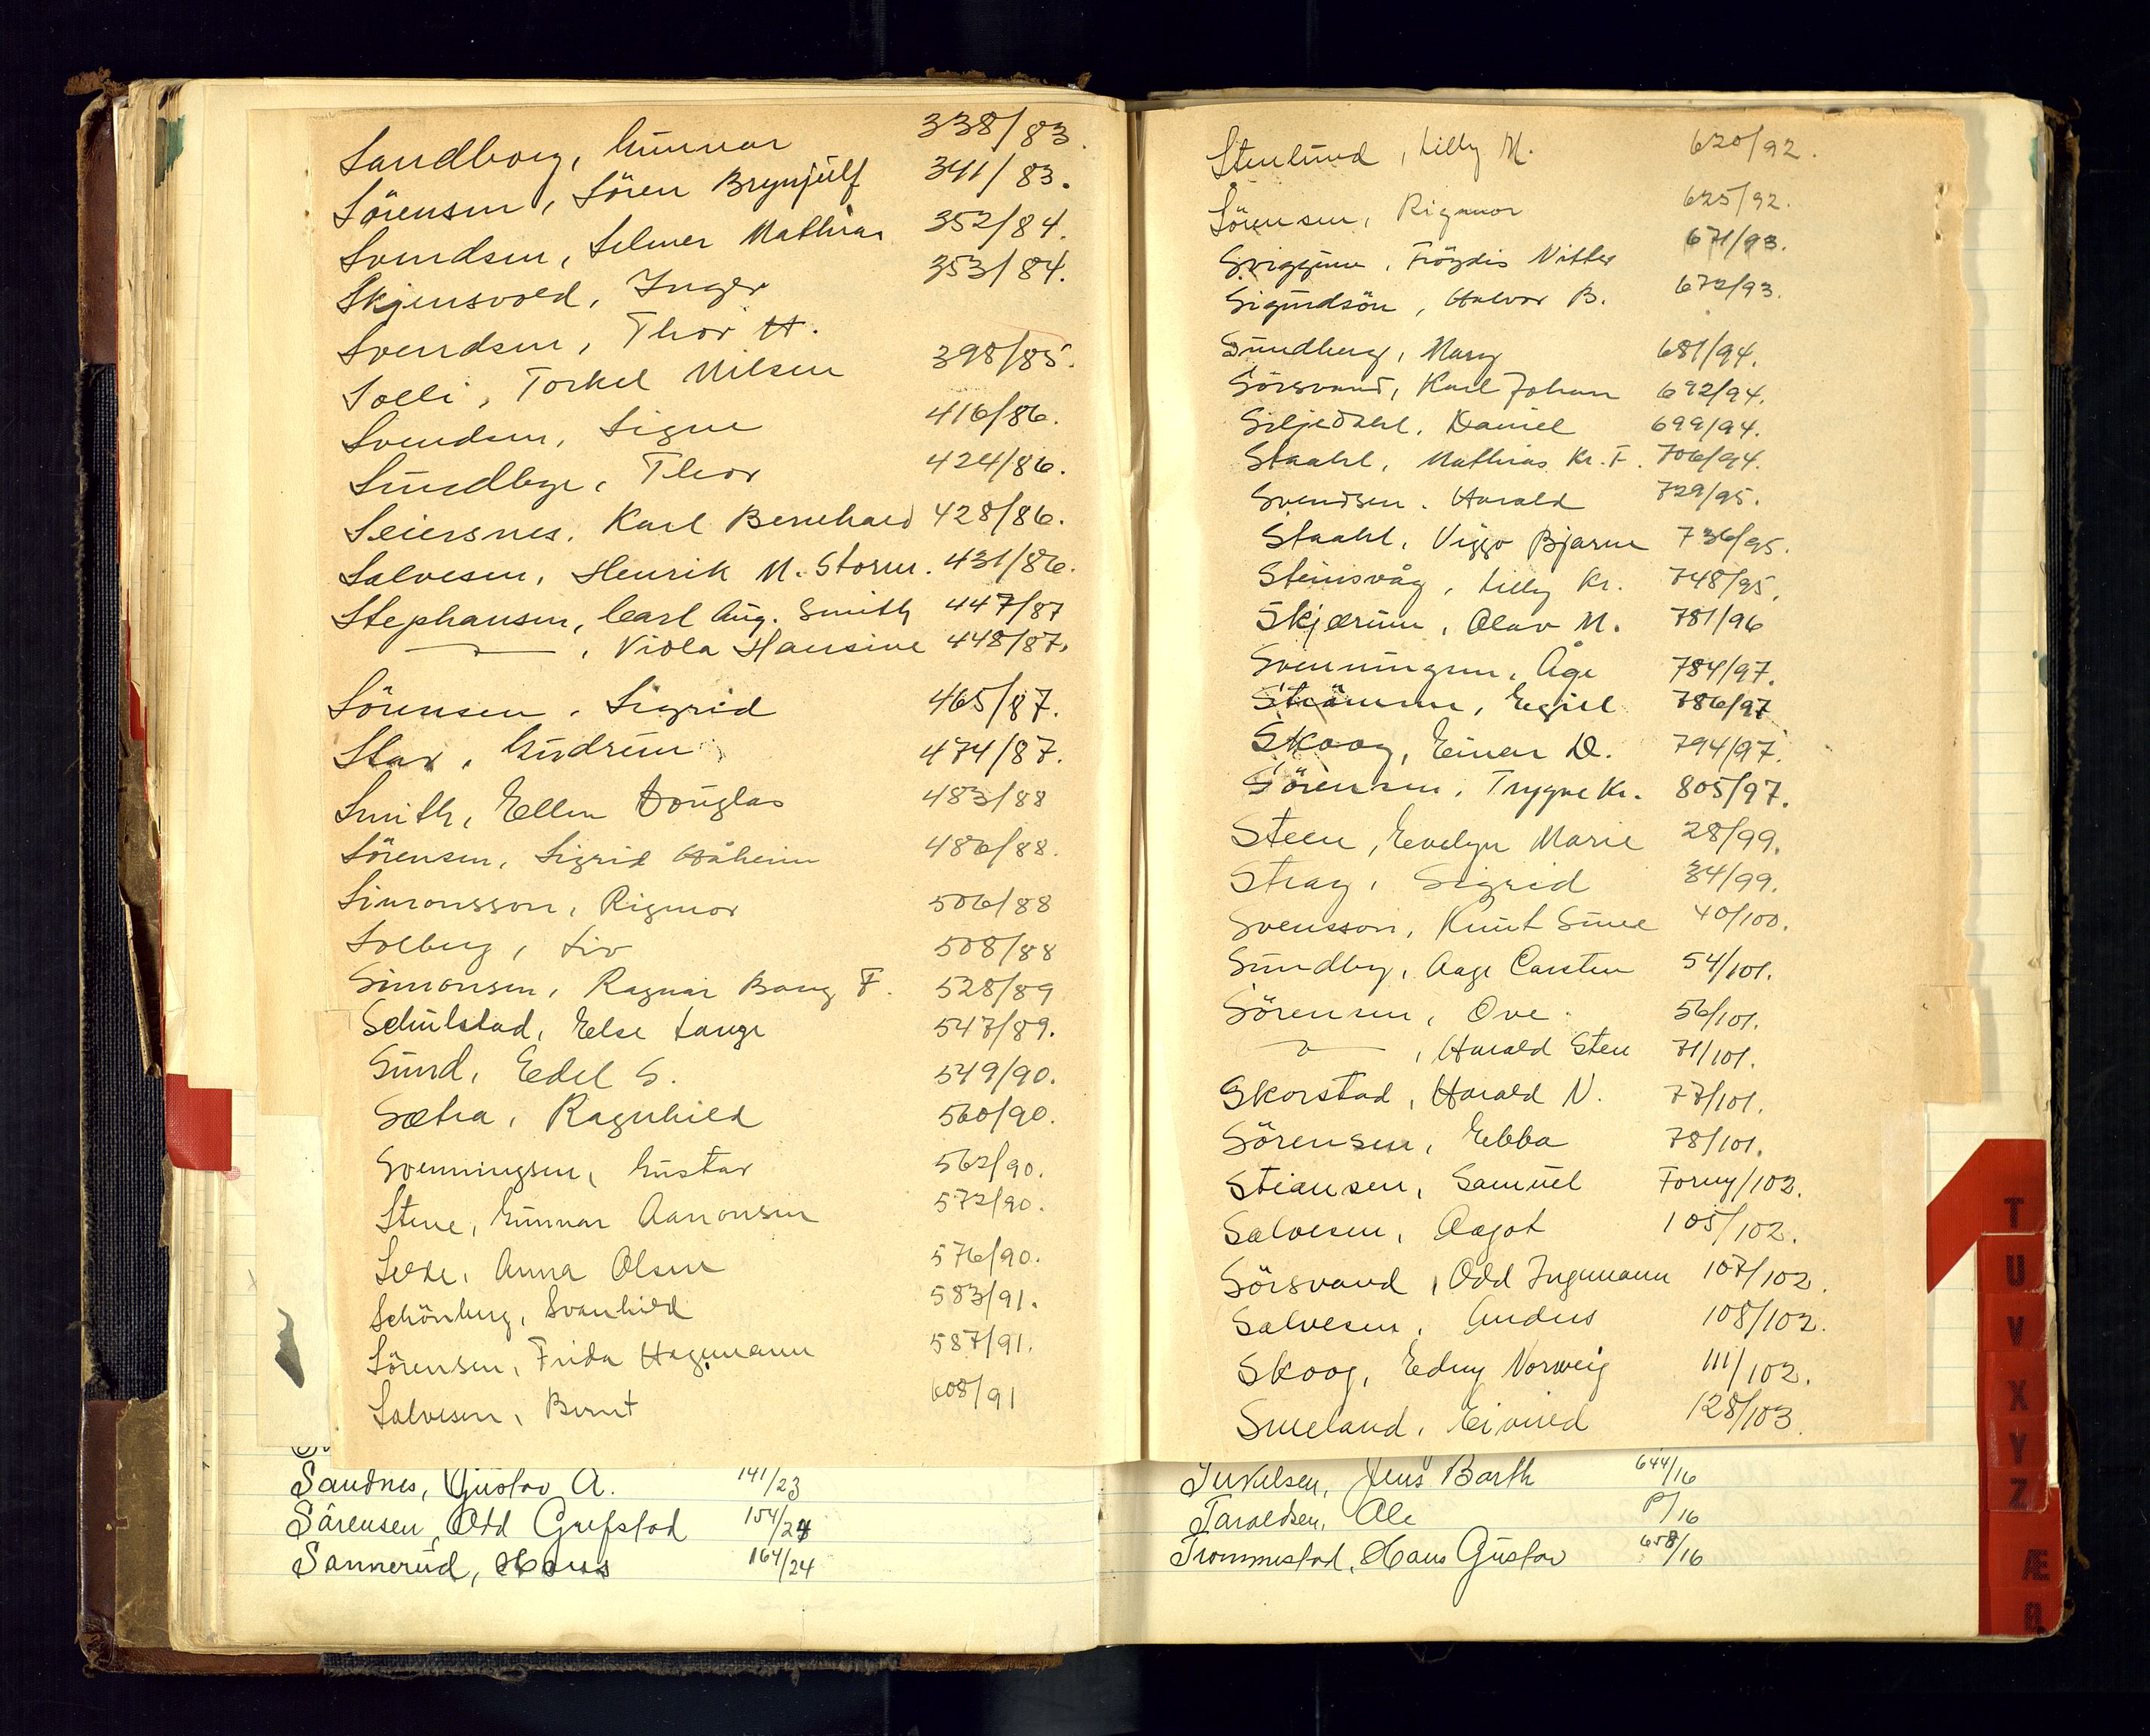 Sandborg, Gunnar 338/83.
Sörensen, Sören Brynjulf 341/83.
Svendsen, Selmer Mathias 352/84.
Skjensvold, Inger 353/84.
Svendsen, Thor H.
Solli, Torkel Nilsen 398/85.
Svendsen, Signe 416/86.
Sundbye, Thor 424/86.
Seiersnes, Karl Bernhard 428/86.
Salvesen, Henrik M. Storm. 431/86.
Stephansen, Carl Aug. Smith 447/87
—"— , Viola Hansine 448/87.
Sörensen, Sigrid 465/87.
Stav, Gudrun 474/87.
Smith, Ellen Douglas 483/88
Sörensen, Sigrid Håheim 486/88.
Simonsson, Rigmor 506/88
Solberg, Liv 508/88
Simonsen, Ragnar Bang F. 528/89
Schulstad, Else Lange 547/89.
Sund, Edel S. 549/90.
Sætra, Ragnhild 560/90.
Svenningsen, Gustav 562/90.
Stene, Gunnar Aanonsen 572/90.
Anna Olsen 576/90.
Schönberg, Svanhild 583/91.
Sörensen, Frida Hagemann 587/91.
Salvesen, Bernt 608/91
Sandnes, Gustav A. 141/23
Sørensen, Odd Grefstad 154/24
Sannerud, Hans 164/24
Stenlund, Lilly M. 620/92.
Sörensen, Rigmor 625/92.
Sviggum, Frögdis Vitter 671/93.
Sigurdsön, Halvor B. 672/93.
Sundberg, Mary 681/94.
Sörsvand, Karl Johan 692/94.
Siljedahl, Daniel 699/94.
Staahl, Mathias Kr. F. 706/94.
Svendsen, Harald 729/95.
Staahl, Viggo Bjarne 736/95.
Steinsvåg, Lilly Kr. 748/95.
Skjærum, Olav M. 781/96
Svenningsen, Åge 784/97.
Strömme, Egil 786/97
Skoog, Einar D. 794/97.
Sörensen, Trygve Kr. 805/97.
Steen, Evelyn Marie 28/99.
Stray, Sigrid 34/99.
Svensson, Knut Sune 40/100.
Sundby, Aage Carsten 54/101.
Sörensen, Ove 56/101.
—"— , Harald Sten 71/101.
Skorstad, Harald N. 77/101.
Sörensen, Ebba 78/101.
Stiansen, Samuel Forny/102.
Salvesen, Aagot 105/102.
Sörsvand, Odd Ingemann 107/102.
Salvesen, Anders 108/102.
Skoog, Edny Norweig 111/102.
Smeland, Eivind 128/103.
Jens Barth 644/16
Taraldsen, Ole P/16
Trommestad, Hans Gustav 658/16
T
U
V
X
Y
Z
Æ
Ø